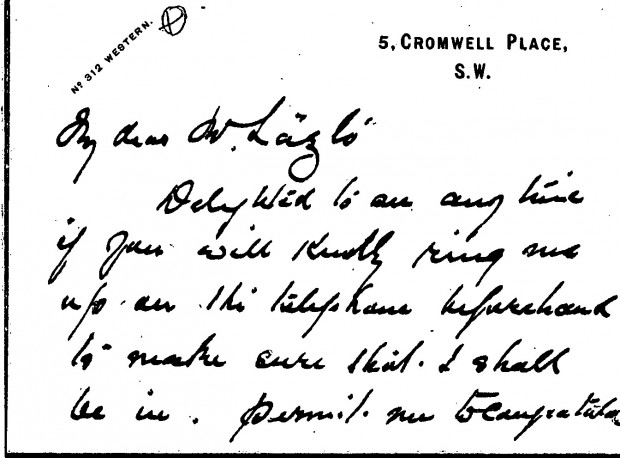 Nº 312 WESTERN.
5, CROMWELL PLACE,
S.W.
My dear Mr. László
Delighted to see any time
if you will kindly ring me
up on the telephone beforehand
to make sure that I shall
be in. Permit me to congratula